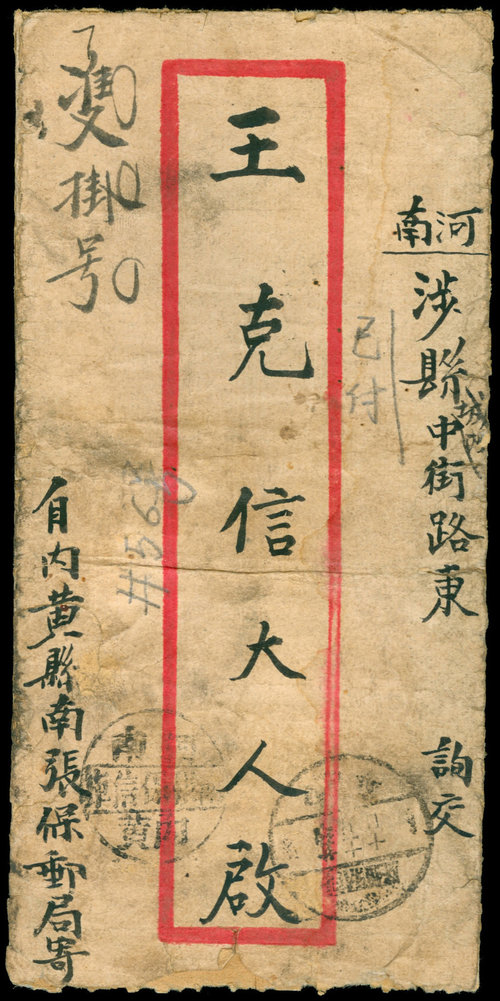 河南
涉縣中街路東
詢交
已付
王克信大人啟
雙掛号
自内黄縣南張保郵局寄